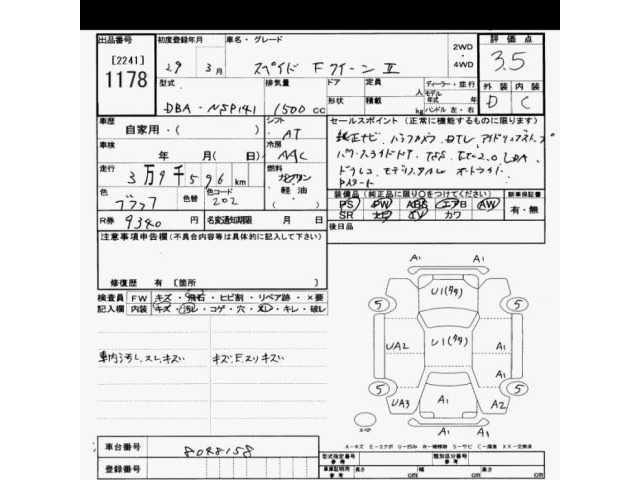 出品番号 初度登録年月 車名・グレード 2WD・4WD 評価点
[2241] 1178 29年3月 スペイド Fクイーン II 3.5
型式 排気量 ドア 定員 人 ディーラー・並行 外装 内装
DBA-NSP141 1500cc 形状 積載 kg モデル年式 年 ハンドル 左・右 D C
車歴 シフト セールスポイント (正常に機能するものに限ります)
自家用・( ) AT 純正ナビ、バックカメラ、DTV、アイドリングストップ
車検 冷房 パワースライドドア TSS
年 月(日) AAC
走行 燃料
3万9千596km ガソリン 軽油・( )
色 色替 色コード 装備品 (純正品に限り○をつけてください) 新車保証書
ブラック 202 PS PW ABS エアB AW 有・無
R券 9340 名変通知期限 月 日 SR ナビ TV カワ
注意事項申告欄 (不具合内容等は具体的に記入して下さい) 後日品
修復歴 有 [箇所 ]
検査員 FW キズ・飛石・ヒビ割・リペア跡・×要
記入欄 内装 キズ・汚レ・コゲ・穴・スレ・キレ・破レ
車内汚レ、スレ、キズ
A1
A1
U1(タタ)
5 5
UA2 U1(タタ) A1
A1
5 5
UA3 A1 A2
A1
スペア
A-キズ E-エクボ U-凹み W-補修跡 S-サビ C-腐食 XX-交換済
車台番号 8048158 型式指定番号 参考 類別区分番号 参考
登録番号 車庫証明用 参考 長さ cm 幅 cm 高さ cm